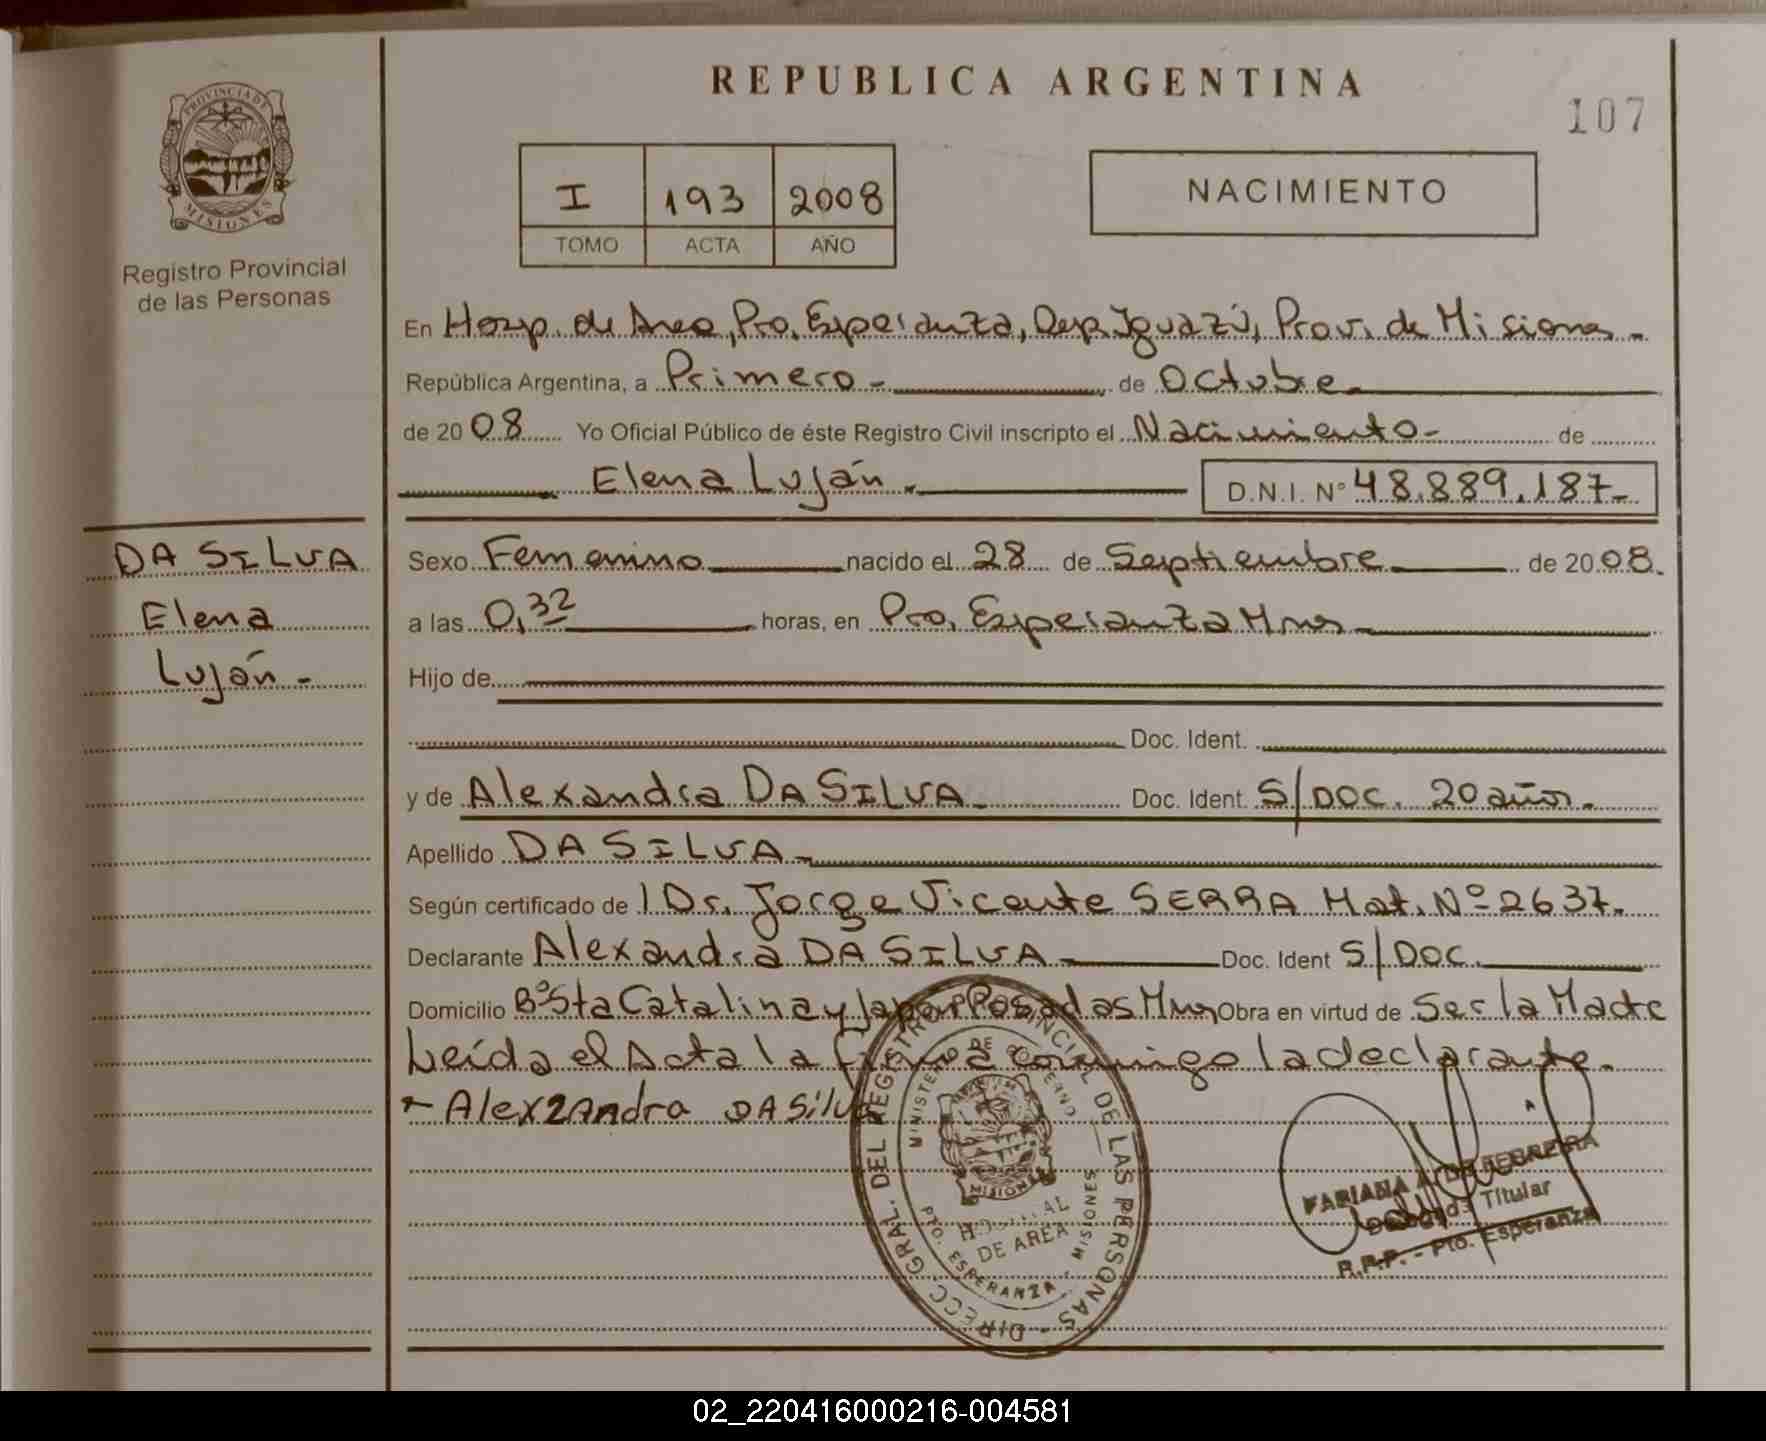 REPUBLICA ARGENTINA
107
PROVINCIA DE
MISIONES
Registro Provincial
de las Personas
I 193 2008
TOMO ACTA AÑO
NACIMIENTO
En Hosp. de Area, Pto. Esperanza, Dep. Iguazú, Prov. de Misiones.-
República Argentina, a Primero.- de Octubre.
de 2008 Yo Oficial Público de éste Registro Civil inscripto el Nacimiento- de
Elena Luján.- D.N.I. Nº 48.889.187-
DA SILVA
Elena
Luján-
Sexo Femenino nacido el 28 de Septiembre de 2008.
a las 0,32 horas, en Pto. Esperanza Mnes-
Hijo de
Doc. Ident.
y de Alexandra DA SILVA- Doc. Ident. S/DOC. 20 años.
Apellido DA SILVA-
Según certificado de l Dr. Jorge Vicente SERRA Mat. Nº 2637.
Declarante Alexandra DA SILVA- Doc. Ident S/DOC.
Domicilio Bº Sta Catalina y Japon Posadas Mnes Obra en virtud de Ser la Madre
Leída el Acta la firma conmigo la declarante.
- Alexzandra DA Silva
DIRECC. GRAL. DEL REGISTRO PROVINCIAL DE LAS PERSONAS -
MINISTERIO DE GOBIERNO
MISIONES
HOSPITAL
DE AREA
PTO. ESPERANZA - MISIONES
FABIANA A. DE FERREIRA
Titular
R.P.P. - Pto. Esperanza
02_220416000216-004581